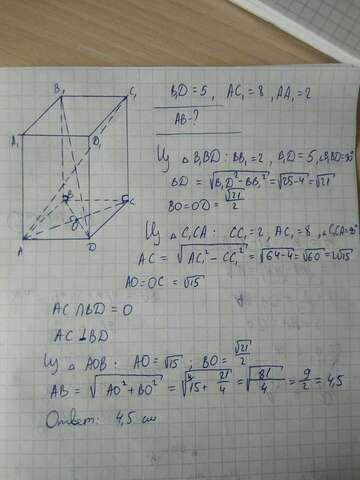 B₁D = 5 , AC₁ = 8 , AA₁ = 2
AB - ?
Из △ B₁BD : BB₁ = 2 , B₁D = 5, ∠B₁BD = 90°
BD = √(B₁D² - BB₁²) = √(25-4) = √21
BO = OD = √21/2
Из △ C₁CA : CC₁ = 2, AC₁ = 8, ∠C₁CA = 90°
AC = √(AC₁² - CC₁²) = √(64-4) = √60 = 2√15
AO = OC = √15
AC ∩ BD = O
AC ⊥ BD
Из △ AOB : AO = √15 ; BO = √21/2
AB = √(AO² + BO²) = √(15 + 21/4) = √(81/4) = 9/2 = 4,5
Ответ: 4,5 см
B₁
C₁
A₁
D₁
B
C
O
A
D